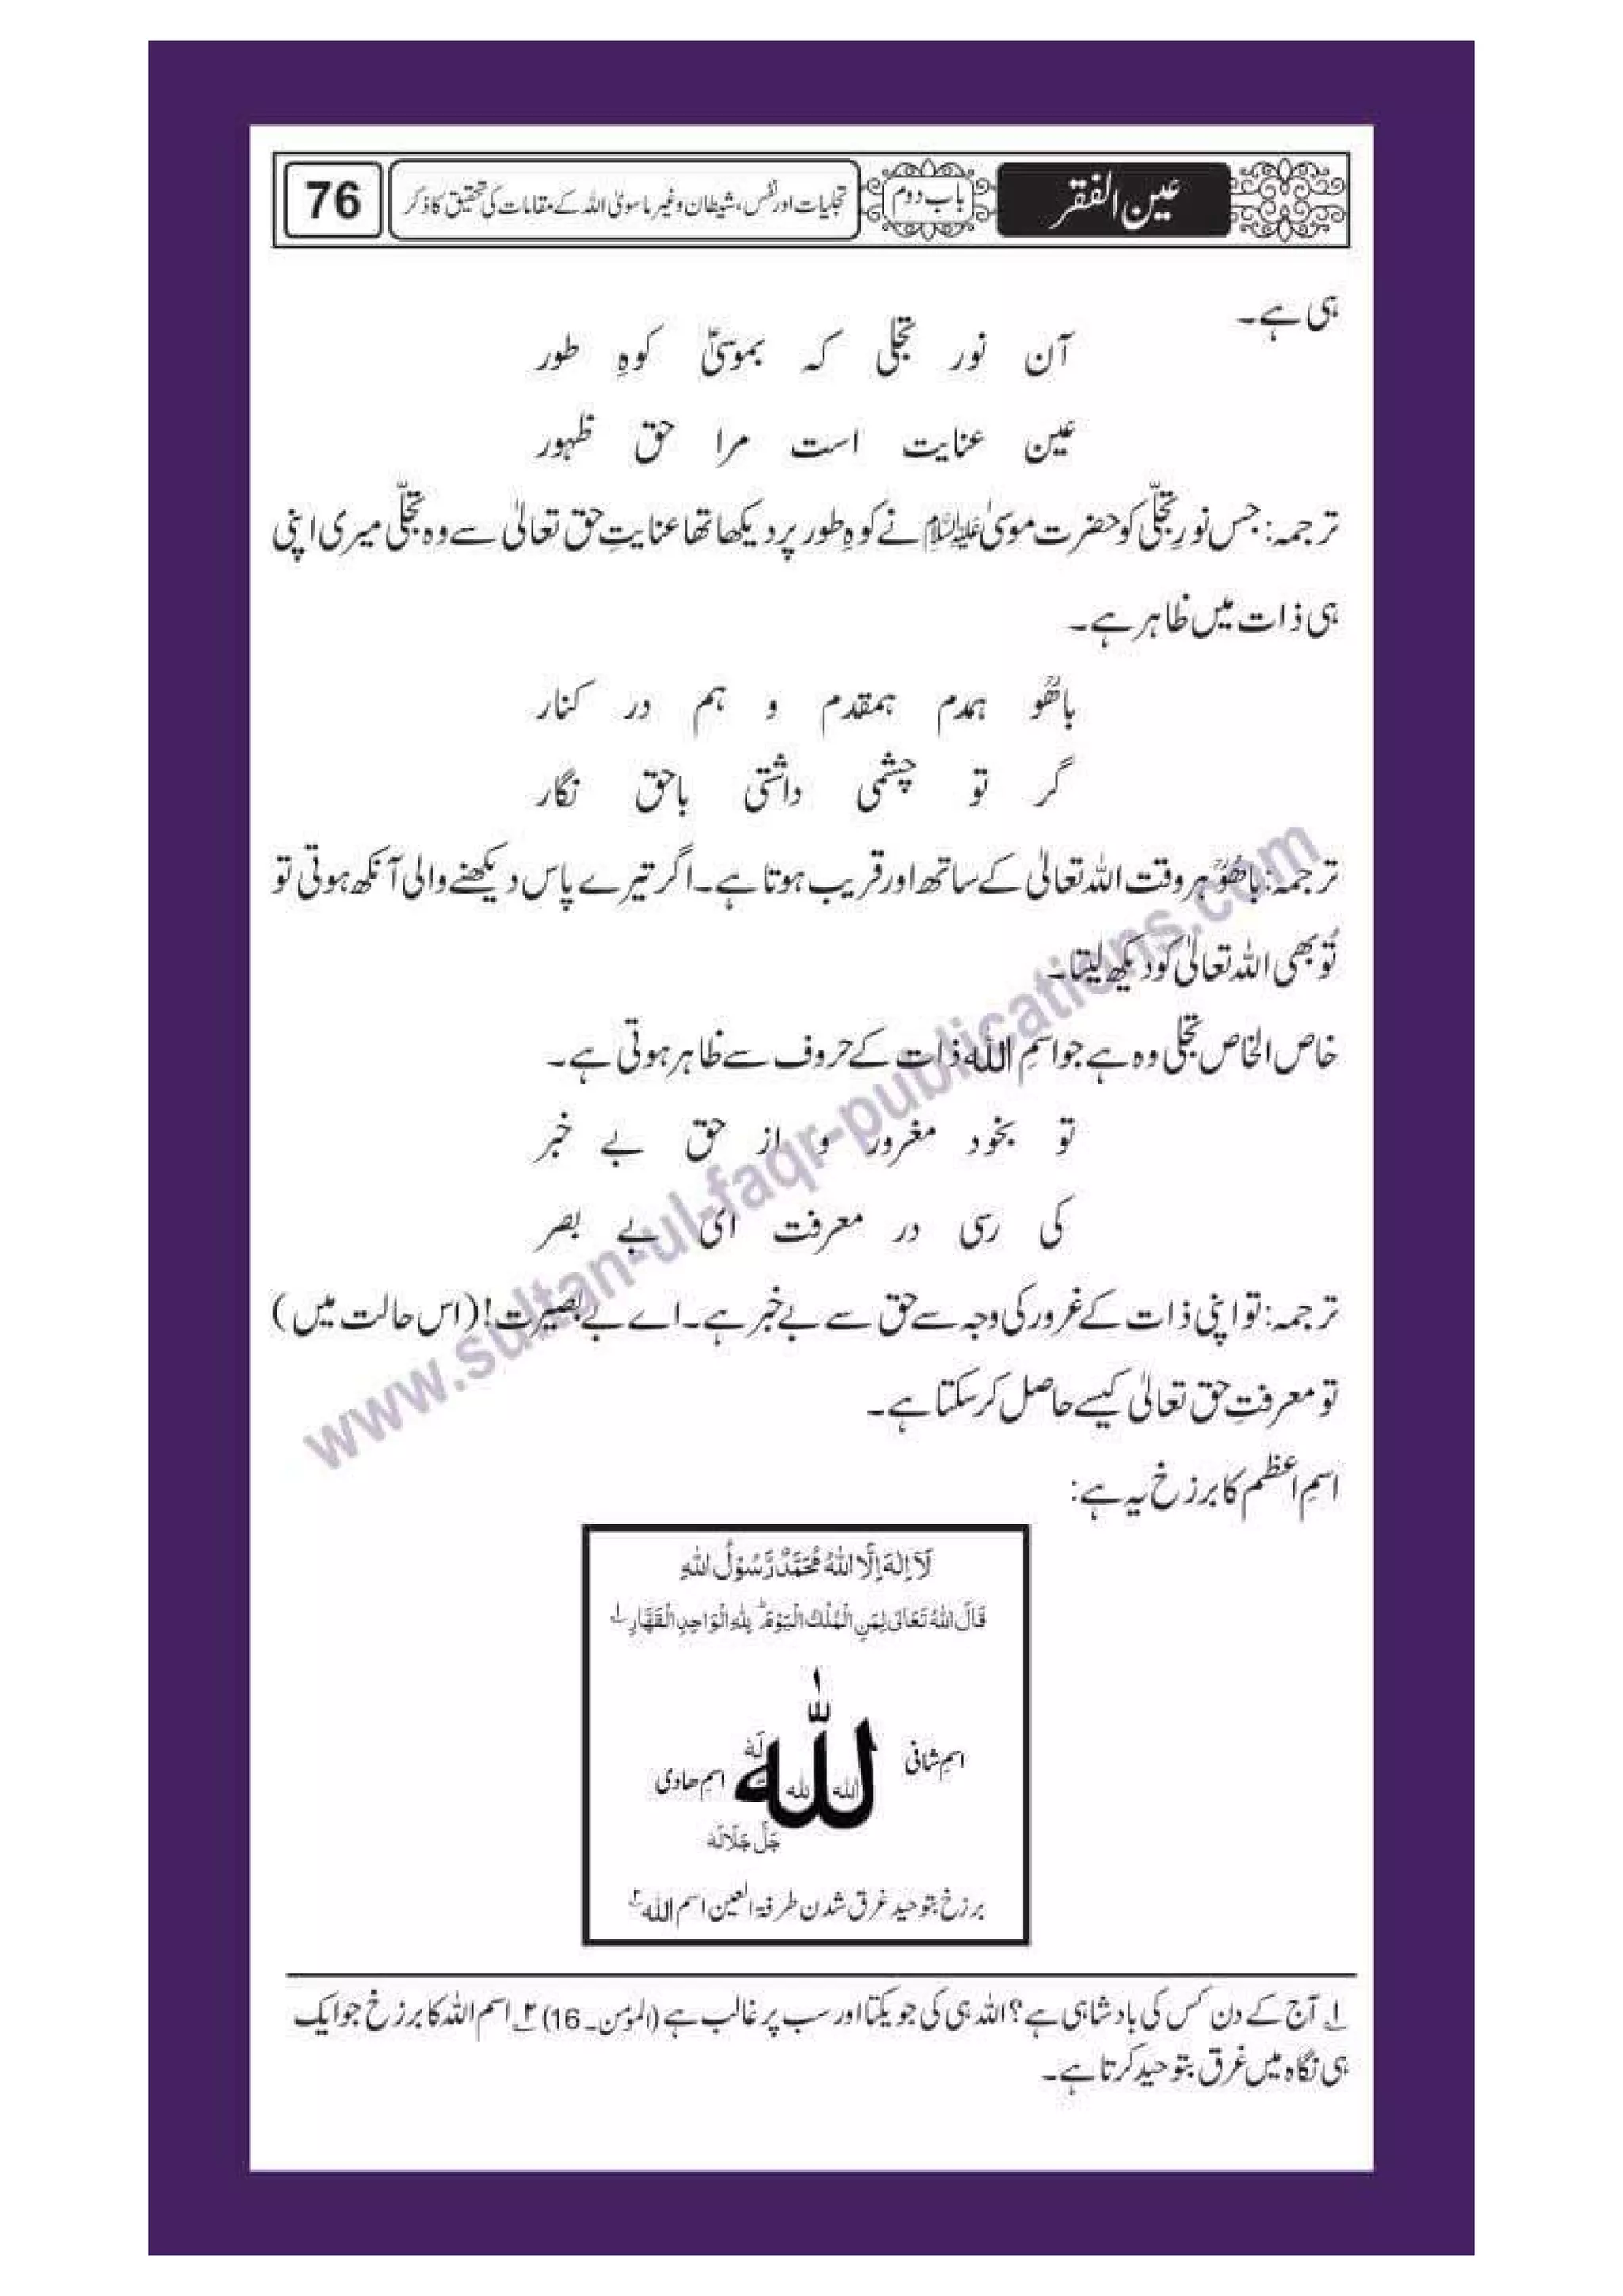 عین الفقر
باب دوم
تجلیات اور نفس، شیطان و غیر ماسویٰ اللہ کے مقامات کی تحقیق کا ذکر
76
ہی ہے۔
آن نور تجلی کہ بموسیٰؑ کوہِ طور
عین عنایت است مرا حق ظہور
ترجمہ: جس نورِ تجلّی کو حضرت موسیٰ علیہ السلام نے کوہِ طور پر دیکھا تھا عنایتِ حق تعالیٰ سے وہ تجلّی میری اپنی
ہی ذات میں ظاہر ہے۔
باھُوؒ ہمدم ہمقدم و ہم در کنار
گر تو چشمی داشتی باحق نگار
ترجمہ: باھُوؒ ہر وقت اللہ تعالیٰ کے ساتھ اور قریب ہوتا ہے۔ اگر تیرے پاس دیکھنے والی آنکھ ہوتی تو
تُو بھی اللہ تعالیٰ کو دیکھ لیتا۔
خاص الخاص تجلی وہ ہے جو اسمِ اللہ ذات کے حروف سے ظاہر ہوتی ہے۔
تو بخود مغرور و از حق بے خبر
کی رسی در معرفت ای بے بصر
ترجمہ: تو اپنی ذات کے غرور کی وجہ سے حق سے بے خبر ہے۔ اے بے بصیرت! (اس حالت میں)
تو معرفتِ حق تعالیٰ کیسے حاصل کر سکتا ہے۔
اسمِ اعظم کا برزخ یہ ہے:
لَآ اِلٰہَ اِلَّا اللّٰہُ مُحَمَّدٌ رَّسُوْلُ اللّٰہِ
قَالَ اللّٰہُ تَعَالٰی لِمَنِ الْمُلْکُ الْیَوْمَ ؕ لِلّٰہِ الْوَاحِدِ الْقَھَّارِ ۱
اللہ
اسمِ شافی
لَہٗ
للہ
للہ
اسمِ ھادی
جَلَّ جَلَالَہٗ
برزخ بتوحید غرق شدن طرفۃ العین اسم اللہ ۲
۱۔ آج کے دن کس کی بادشاہی ہے؟ اللہ ہی کی جو یکتا اور سب پر غالب ہے (المؤمن۔ 16) ۲۔ اسم اللہ کا برزخ جو ایک
ہی نگاہ میں غرق بتوحید کرتا ہے۔
www.sultan-ul-faqr-publications.com